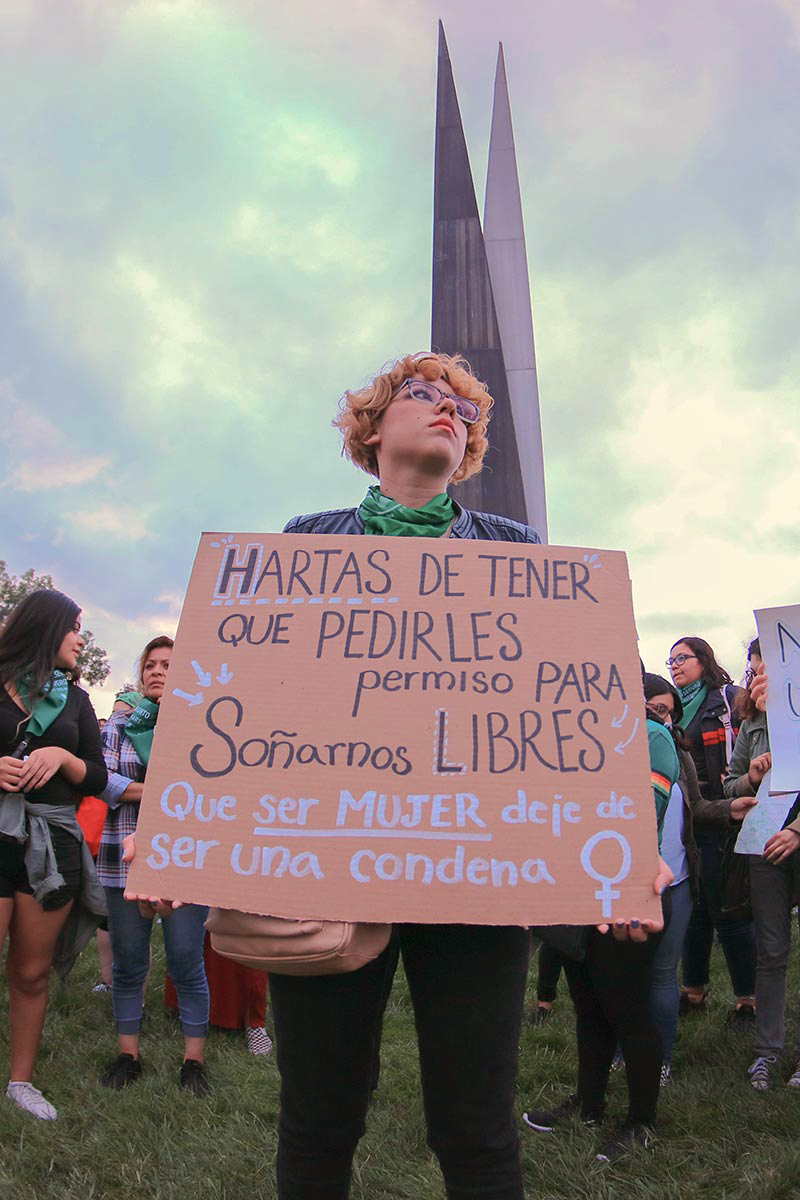 HARTAS DE TENER
QUE PEDIRLES
permiso PARA
Soñarnos LIBRES
Que ser MUJER deje de
ser una condena